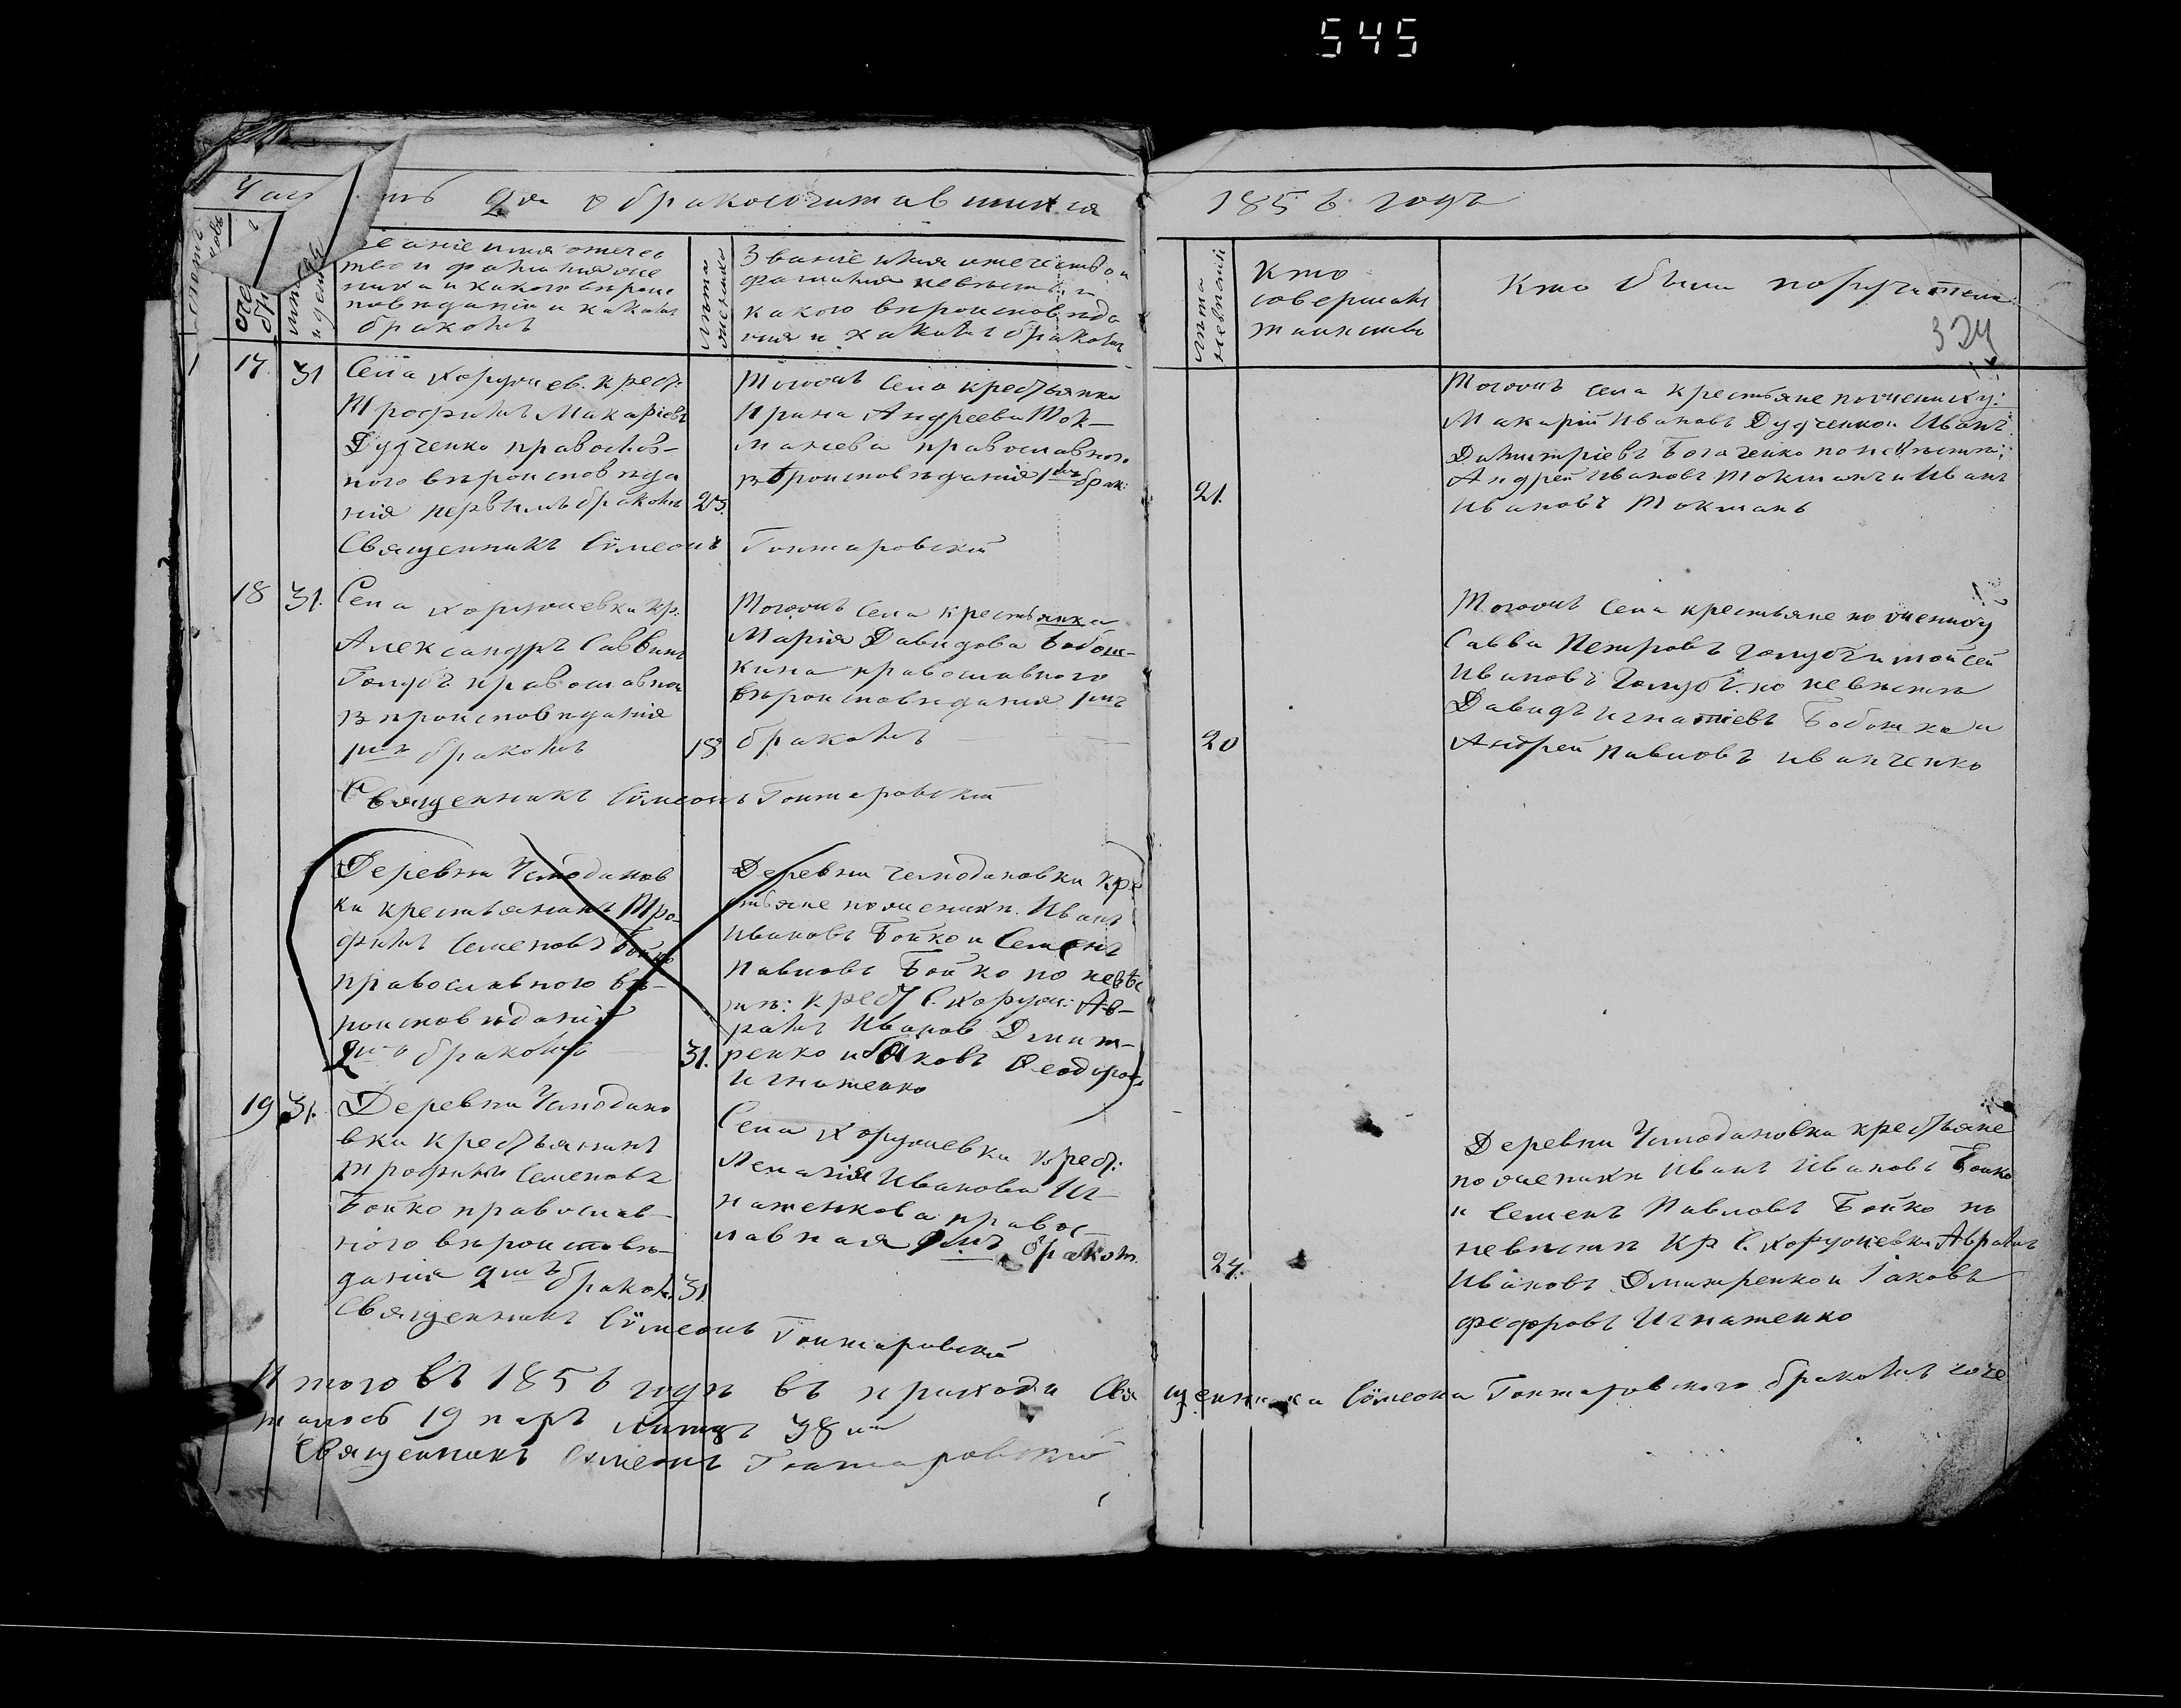 545
Часть 2я о бракосочитавшихся
1856 годъ
званіе имя отечес
тво и фамилия же
ниха и какого вероис
поведанія и какимъ
бракомъ
лѣта
жениха
Званіе имя отечество и
фамилия невесты и
какого вероисповѣда
ния и какимъ бракомъ
лѣта
невесты
Кто
совершалъ
таинство
Кто были поручители
324
17
31
Села Хоружев. Крест:
Трофимъ Макаріевъ
Дудченко православ-
ного вероисповѣда
нія первымъ бракомъ
25.
Священникъ Сѵмеонъ Гонтаровскій
Тогожъ села крестьянка
Ирина Андреева Ток-
мачева православного
вѣроисповѣданія 1мъ брак:
21.
Тогожъ села крестьяне по жениху:
Макарій Ивановъ Дудченко и Иванъ
Димитріевъ Богаченко по невѣсте:
Андрей Ивановъ Токмань и Иванъ
Ивановъ Токмань
18
31.
Села Хоружевки Кр:
Александръ Саввинъ
Голубъ православного
вероисповѣданія
1мъ бракомъ
18
Священникъ Сѵмеонъ Гонтаровскій
Тогожъ села крестьянка
Марія Давидова Бобош-
кина православного
вероисповѣданія 1мъ
бракомъ
20
Тогожъ села крестьяне по жениху
Савва Петровъ Голубъ и Мойсей
Ивановъ Голубъ. по невѣсте
Давидъ Игнатіевъ Бобошка и
Андрей Павловъ Иванченко
Деревни Чемоданов
ки крестьянинъ Тро-
фимъ Семеновъ Бойко
православного ве-
роисповѣданія
2мъ бракомъ
31.
Деревни Чемодановки Кре
стьяне по жениху. Иванъ
Ивановъ Бойко и Семенъ
Павловъ Бойко по невѣс
те: крест С. Хоруж: Ав-
рамъ Иванов Дмит-
ренко и Яковъ Феодоровъ
Игнатенко
19
31.
Деревни Чемодано
вки крестьянинъ
Трофимъ Семеновъ
Бойко православ-
ного вероисповѣ-
данія 2мъ браком.
31.
Священникъ Сѵмеонъ Гонтаровскій
Села Хоружевки крест:
Мелания Иванова Иг-
натенкова правос-
лавная 2мъ браком.
24.
Деревни Чемодановки крестьяне
по жениху Иванъ Ивановъ Бойко
и Семенъ Павловъ Бойко по
невѣсте Кр С. Хоружевки Аврамъ
Ивановъ Дмитренко и Іаковъ
Федоровъ Игнатенко
Итого въ 1856 годѣ въ приходи Свя щенника Сѵмеона Гонтаровского бракомъ соче
талось 19 паръ лицъ 38 
Священникъ Сѵмеонъ Гонтаровскій